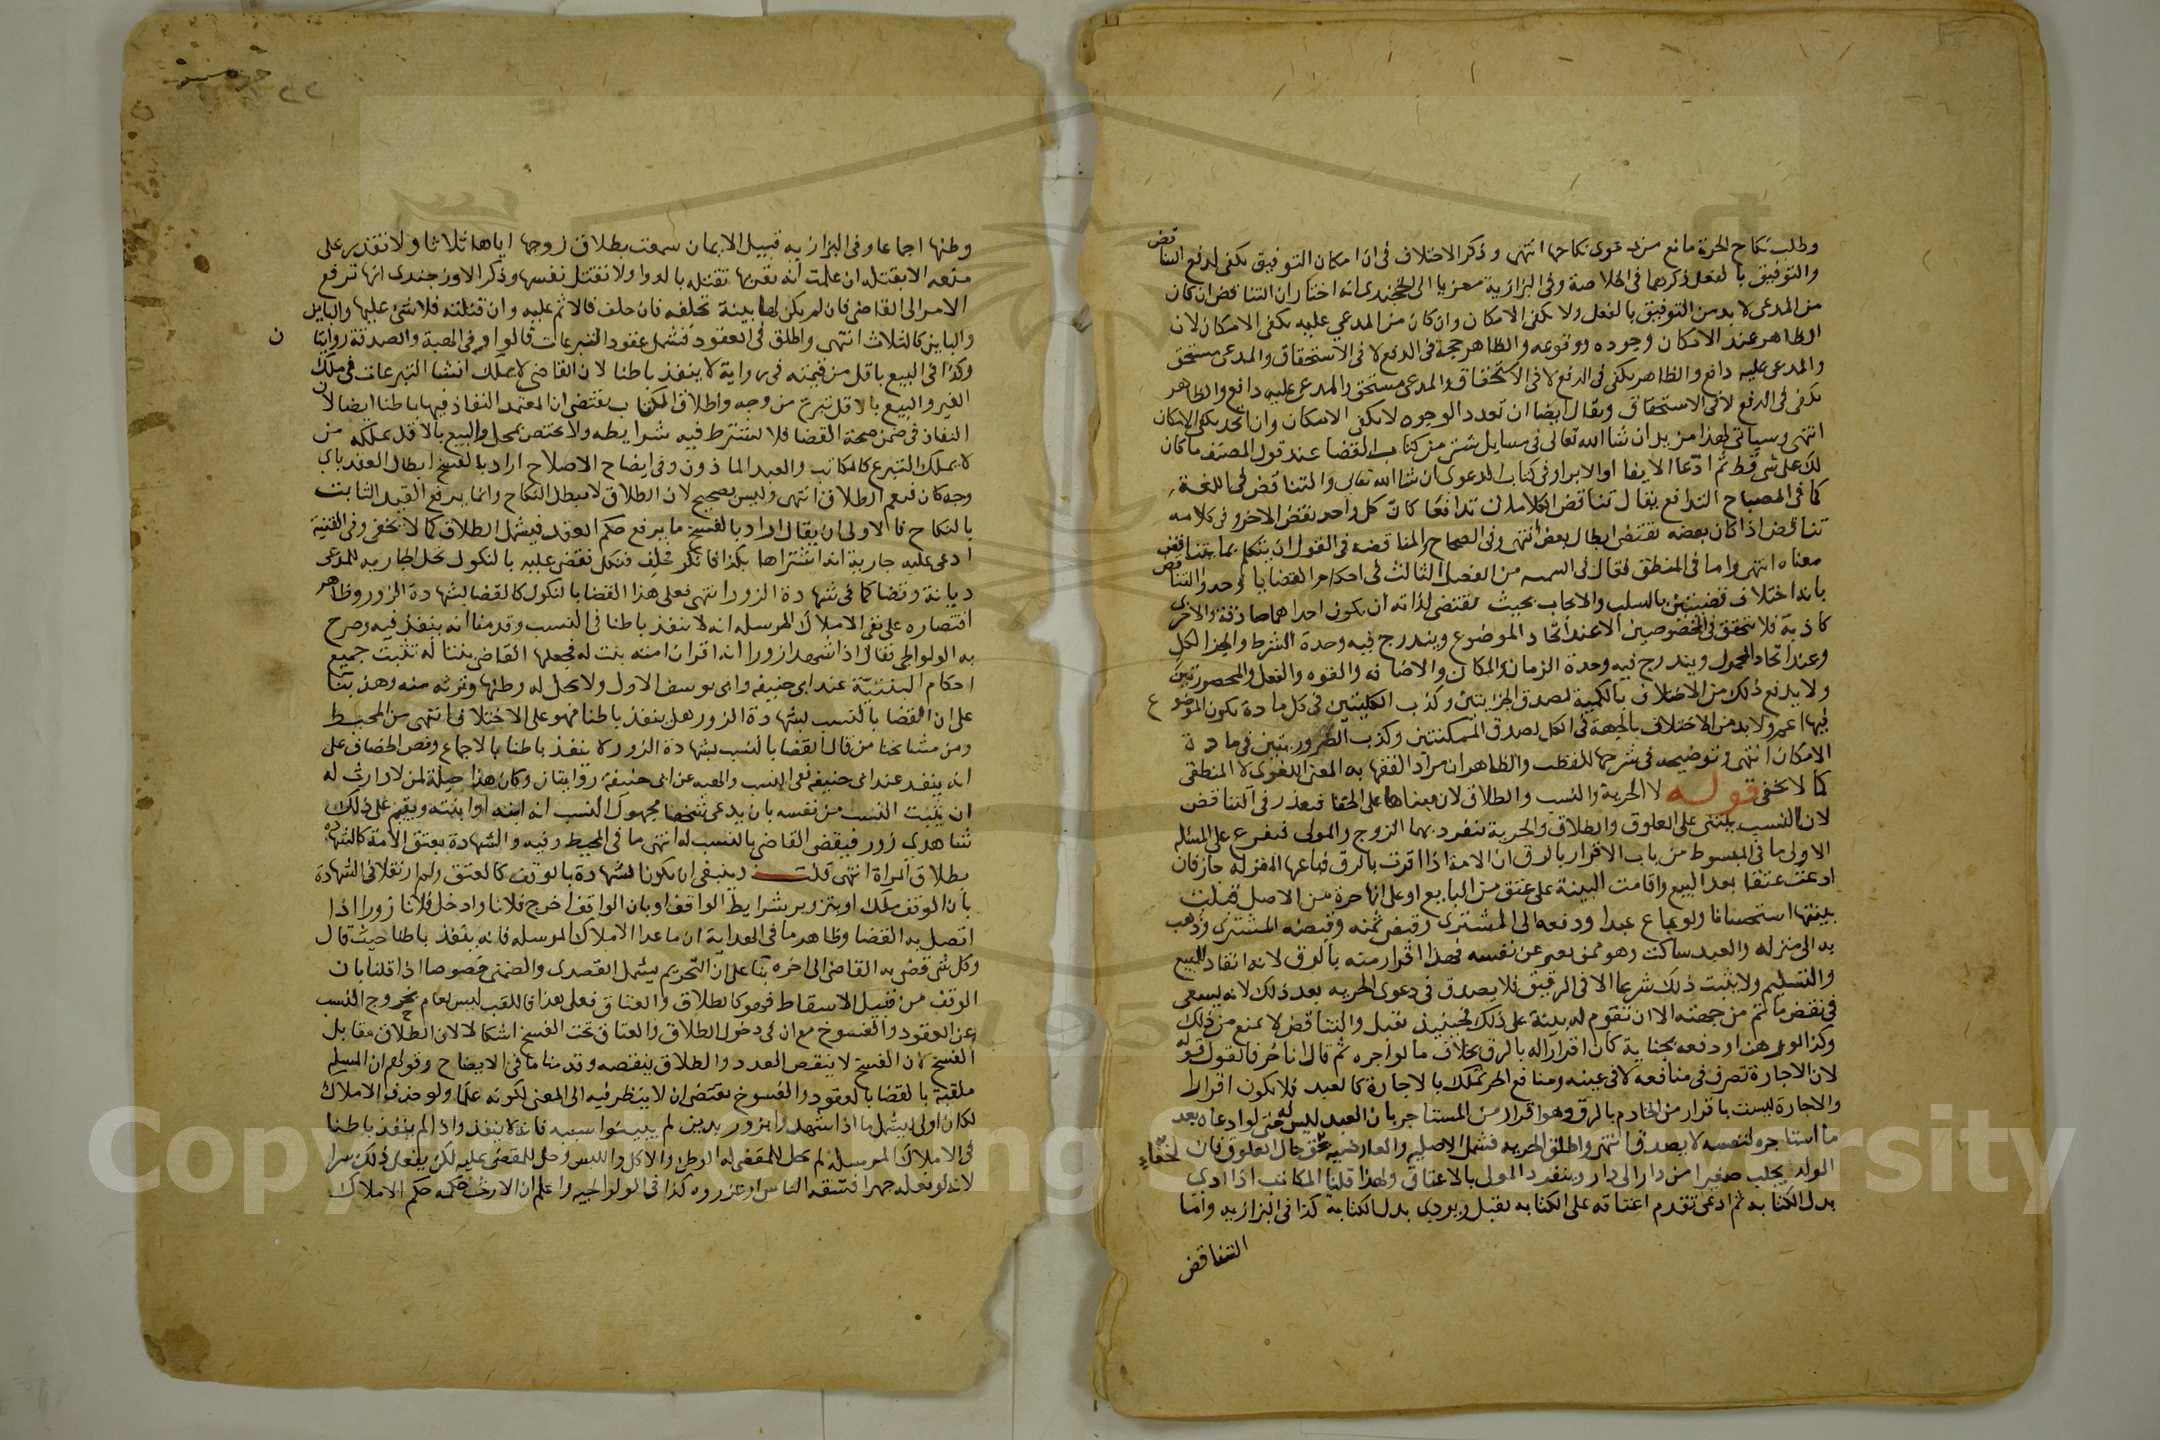 وطلب نكاح الحرة مانع من دعوى نكاحها انتهى وذكر الاختلاف في ان امكان التوفيق يكفى لدفع التناقض
والتوفيق بالفعل ذكرهما في الخلاصة وفي البزازية معزيا الى الخجندى انه اختار ان التناقض ان كان
من المدعى لا بد من التوفيق بالفعل ولا يكفى الامكان وان كان من المدعى عليه يكفى الامكان لان
الظاهر عند الامكان وجوده ووقوعه والظاهر حجة في الدفع لا في الاستحقاق والمدعى مستحق
والمدعى عليه دافع والظاهر يكفى في الدفع لا في الاستحقاق والمدعى مستحق والمدعى عليه دافع والظاهر
يكفى في الدفع لا في الاستحقاق ويقال ايضا ان تعدد الوجوه لا يكفى الامكان وان اتحد يكفى الامكان
انتهى وسياتى لهذا مزيد ان شا الله تعالى في مسايل شتى من كتاب القضا عند قول المصنف ما كان
لك على شى قط ثم ادعا الايفا او الابرا وفي كتاب الدعوى ان شا الله تعالى والتناقض في اللغة
كما في المصباح التدافع يقال تناقض الكلامان تدافعا كان كل واحد نقض الاخر وفي كلامه
تناقض اذا كان بعضه يقتضى ابطال بعض انتهى وفي الصحاح والمناقضة في القول ان يتكلم بما يتناقض
معناه انتهى واما في المنطق فقال في الشمسية من الفصل الثالث في احكام القضايا اوحد والتناقض
بانه اختلاف قضيتين بالسلب والايجاب بحيث يقتضى لذاته ان يكون احداهما صادقة والاخرى
كاذبة فلا يتحقق في المخصوصتين الا عند اتحاد الموضوع ويندرج فيه وحدة الشرط والجزا لكل
وعند اتحاد المحمول ويندرج فيه وحدة الزمان والمكان والاضافة والقوه والفعل والمحصورتين
ولا بد مع ذلك من الاختلاف بالكمية لصدق الجزئيتين وكذب الكليتين في كل مادة يكون الموضوع
فيها اعم ولا بد من الاختلاف بالجهة في الكل لصدق الممكنتين وكذب الضروريتين في مادة
الامكان انتهى وتوضيحه في شرحها للقطب والظاهر ان مراد الفقها به المعنى اللغوى لا المنطقى
كما لا يخفى قوله لا الحرية والنسب والطلاق لان مبناها على الخفا فيعذر في التناقض
لان النسب يبتنى على العلوق والطلاق والحرية ينفرد بهما الزوج والمولى فتفرع على المسئلة
الاولى ما في المبسوط من باب الاقرار بالرق ان الامة اذا اقرت بالرق فباعها المقر له جاز فان
ادعت عتقا بعد البيع واقامت البينة على عتق من البايع او على انها حرة من الاصل قبلت
بينتها استحسانا ولو باع عبدا ودفعه الى المشترى وقبض ثمنه وقبضه المشترى وذهب
به الى منزله والعبد ساكت وهو ممن يعبر عن نفسه فهذا اقرار منه بالرق لانه انقاد للبيع
والتسليم ولا يثبت ذلك شرعا الا في الرقيق فلا يصدق في دعوى الحرية بعد ذلك لانه يسعى
في نقض ما تم من جهته الا ان تقوم له بينة على ذلك فحينئذ تقبل والتناقض لا يمنع من ذلك
وكذا لو رهنه او دفعه بجناية كان اقرارا له بالرق بخلاف ما لو اجره ثم قال انا حر فالقول قوله
لان الاجارة تصرف في منافعه لا في عينه ومنافع الحر تملك بالاجارة كالعبد فلا يكون اقرارا
والاجارة ليست باقرار من الخادم بالرق وهو اقرار من المستاجر بان العبد ليس له حتى لو ادعاه بعد
ما استاجره لنفسه لا يصدق انتهى واطلق الحرية فشمل الاصلية والعارضية لخفاء حال العلوق فان
الولد يجلب صغيرا من دار الى دار وينفرد المولى بالاعتاق ولهذا قلنا المكاتب اذا ادى
بدل الكتابة ثم ادعى تقدم اعتاقه على الكتابة يقبل ويردى بدل الكتابة كذا في البزازية واما
التناقض
وطئها اجماعا وفي البزازية قبيل الايمان سمعت بطلاق زوجها اياها ثلاثا ولا تقدر على
منعه الا بقتله ان علمت انه يقربها تقتله بالدوا ولا تقتل نفسها وذكر الاوزجندى انها ترفع
الامر الى القاضى فان لم يكن لها بينة تحلفه فان حلف فالاثم عليه وان قتلته فلا شى عليها والباين
والباين كالثلاث انتهى واطلق في العقود فشمل عقود التبرعات قالوا وفي الهبة والصدقة روايتان
وكذا في البيع باقل من قيمته في رواية لا ينفذ باطنا لان القاضى لا يملك انشا التبرعات في ملك
الغير والبيع بالاقل تبرع من وجه واطلاق الكتاب يقتضى ان المعتمد النفاذ فيها باطنا ايضا لان
النفاذ في ضمن صحة القضا فلا يشترط فيه شرايطه ولا يختص بمحل والبيع بالاقل يملكه من
لا يملك التبرع كالمكاتب والعبد الماذون وفي ايضاح الاصلاح اراد بالفسخ ابطال العقد باى
وجه كان فيعم الطلاق انتهى وليس بصحيح لان الطلاق لا يبطل النكاح وانما يرفع القيد الثابت
بالنكاح فالاولى ان يقال اراد بالفسخ ما يرفع حكم العقد فيشمل الطلاق كما لا يخفى وفي القنية
ادعى عليه جارية انه اشتراها بكذا فانكر فحلف فنكل فقضى عليه بالنكول تحل الجارية للمدعى
ديانة وقضا كما في شهادة الزور انتهى فعلى هذا القضا بالنكول كالقضا بشهادة الزور وظاهر
اقتصاره على نفى الاملاك المرسلة انه لا ينفذ باطنا في النسب وقدمنا انه ينفذ فيه وصرح
به الولوالجى فقال اذا شهدا زورا انه اقر ان امته بنت له فجعلها القاضى بنتا له تثبت جميع
احكام البنتية عند ابى حنيفة وابى يوسف الاول ولا يحل له وطئها وترثه منه وهذا بنا
على ان القضا بالنسب بشهادة الزور هل ينفذ باطنا فهو على الاختلاف انتهى من المحيط
ومن مشايخنا من قال القضا بالنسب بشهادة الزور لا ينفذ باطنا بالاجماع ونص الخصاف على
انه ينفذ عند ابى حنيفة ففى النسب والهبة عن ابى حنيفة روايتان وكان هذا حيلة لمن لا وارث له
ان يثبت النسب من نفسه بان يدعى شخصا مجهول النسب انه ابنه او ابنته ويقيم على ذلك
شاهدى زور فيقضى القاضى بالنسب له انتهى ما في المحيط وفيه والشهادة بعتق الامة كالشهادة
بطلاق المراة انتهى قلت وينبغى ان يكون الشهادة بالوقف كالعتق ولم ار نقلا في الشهادة
بان الوقف ملك او بتزوير شرايط الواقف او بان الواقف اخرج فلانا وادخل فلانا زورا اذا
اتصل به القضا وظاهر ما في الهداية ان ما عدا الاملاك المرسلة فانه ينفذ باطنا حيث قال
وكل شى قضى به القاضى الى اخره بنا على ان التحريم يشمل القصدى والضمنى خصوصا اذا قلنا بان
الوقف من قبيل الاسقاط فهو كالطلاق والعتاق فعلى هذا فاللقب ليس بعام بخروج النسب
عن العقود والفسوخ مع ان في دخول الطلاق والعتاق تحت الفسخ اشكالا لان الطلاق مقابل
الفسخ لان الفسخ لا ينقص العدد والطلاق ينقصه وقدمنا ما في الايضاح وقولهم ان المسئلة
ملقبة بالقضا بالعقود والفسوخ يقتضى ان لا ينظر فيه الى المعنى لكونه علما ولو حذفوا الاملاك
لكان اولى ليشمل ما اذا شهدا بزور بدين لم يبينوا سببه فانه لا ينفذ واذا لم ينفذ باطنا
في الاملاك المرسلة لم يحل للمقضى له الوطئ والاكل واللبس وحل للمقضى عليه لكن يفعل ذلك سرا
لانه لو فعله جهرا فسقه الناس او عزروه كذا في الولوالجية واعلم ان الارث حكمه حكم الاملاك
Copyright © King Saud University